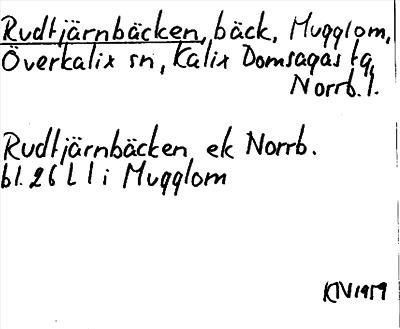 Rudtjärnbäcken, bäck, Mugglom,
Överkalix sn, Kalix Domsagas tg,
Norrb. l.
Rudtjärnbäcken ek Norrb.
bl. 26 L l i Mugglom
KIV 1959